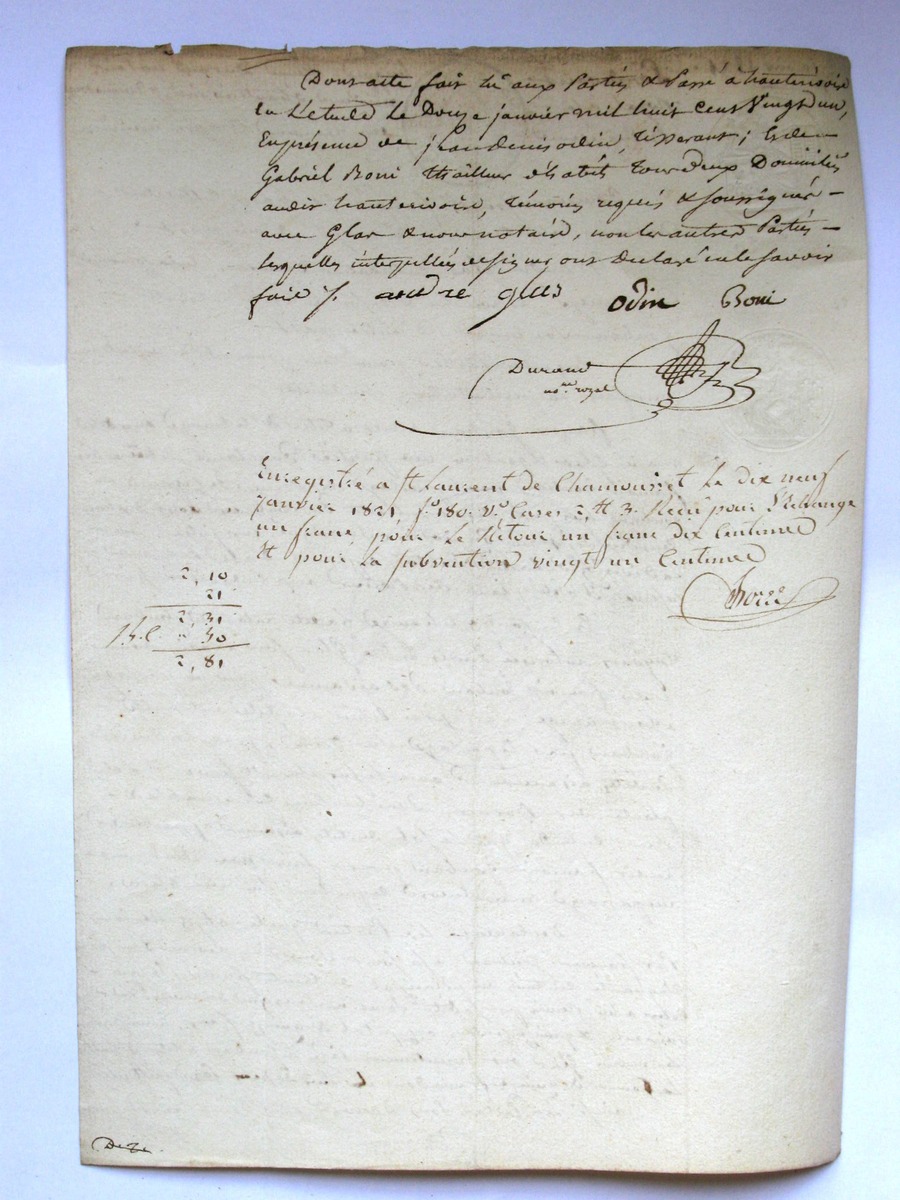 Dont acte fait lu aux Parties & Passé à hauterivoire
En L'etude Le Douze janvier mil huit cent Vingt un,
En présence de jean denis odin, tisserant; Et de
Gabriel Boni thailleur d'habits tous deux Domiciliés
audit hauterivoire, témoins requis & soussignés
avec Glas & nous notaire, non les autres Parties
lesquelles interpellées de signer ont declaré ne le savoir
faire /. andre glas odin Boni
Durand
no.re royal
Enregistré a St Laurent de Chamousset Le dix neuf
janvier 1821 f.o 180. v.o Cases 2 et 3. Recu pour l'Echange
un franc, pour Le Retour un franc dix Centimes
Et pour La subvention vingt un Centimes
2, 10
21
2, 31
50
2, 81